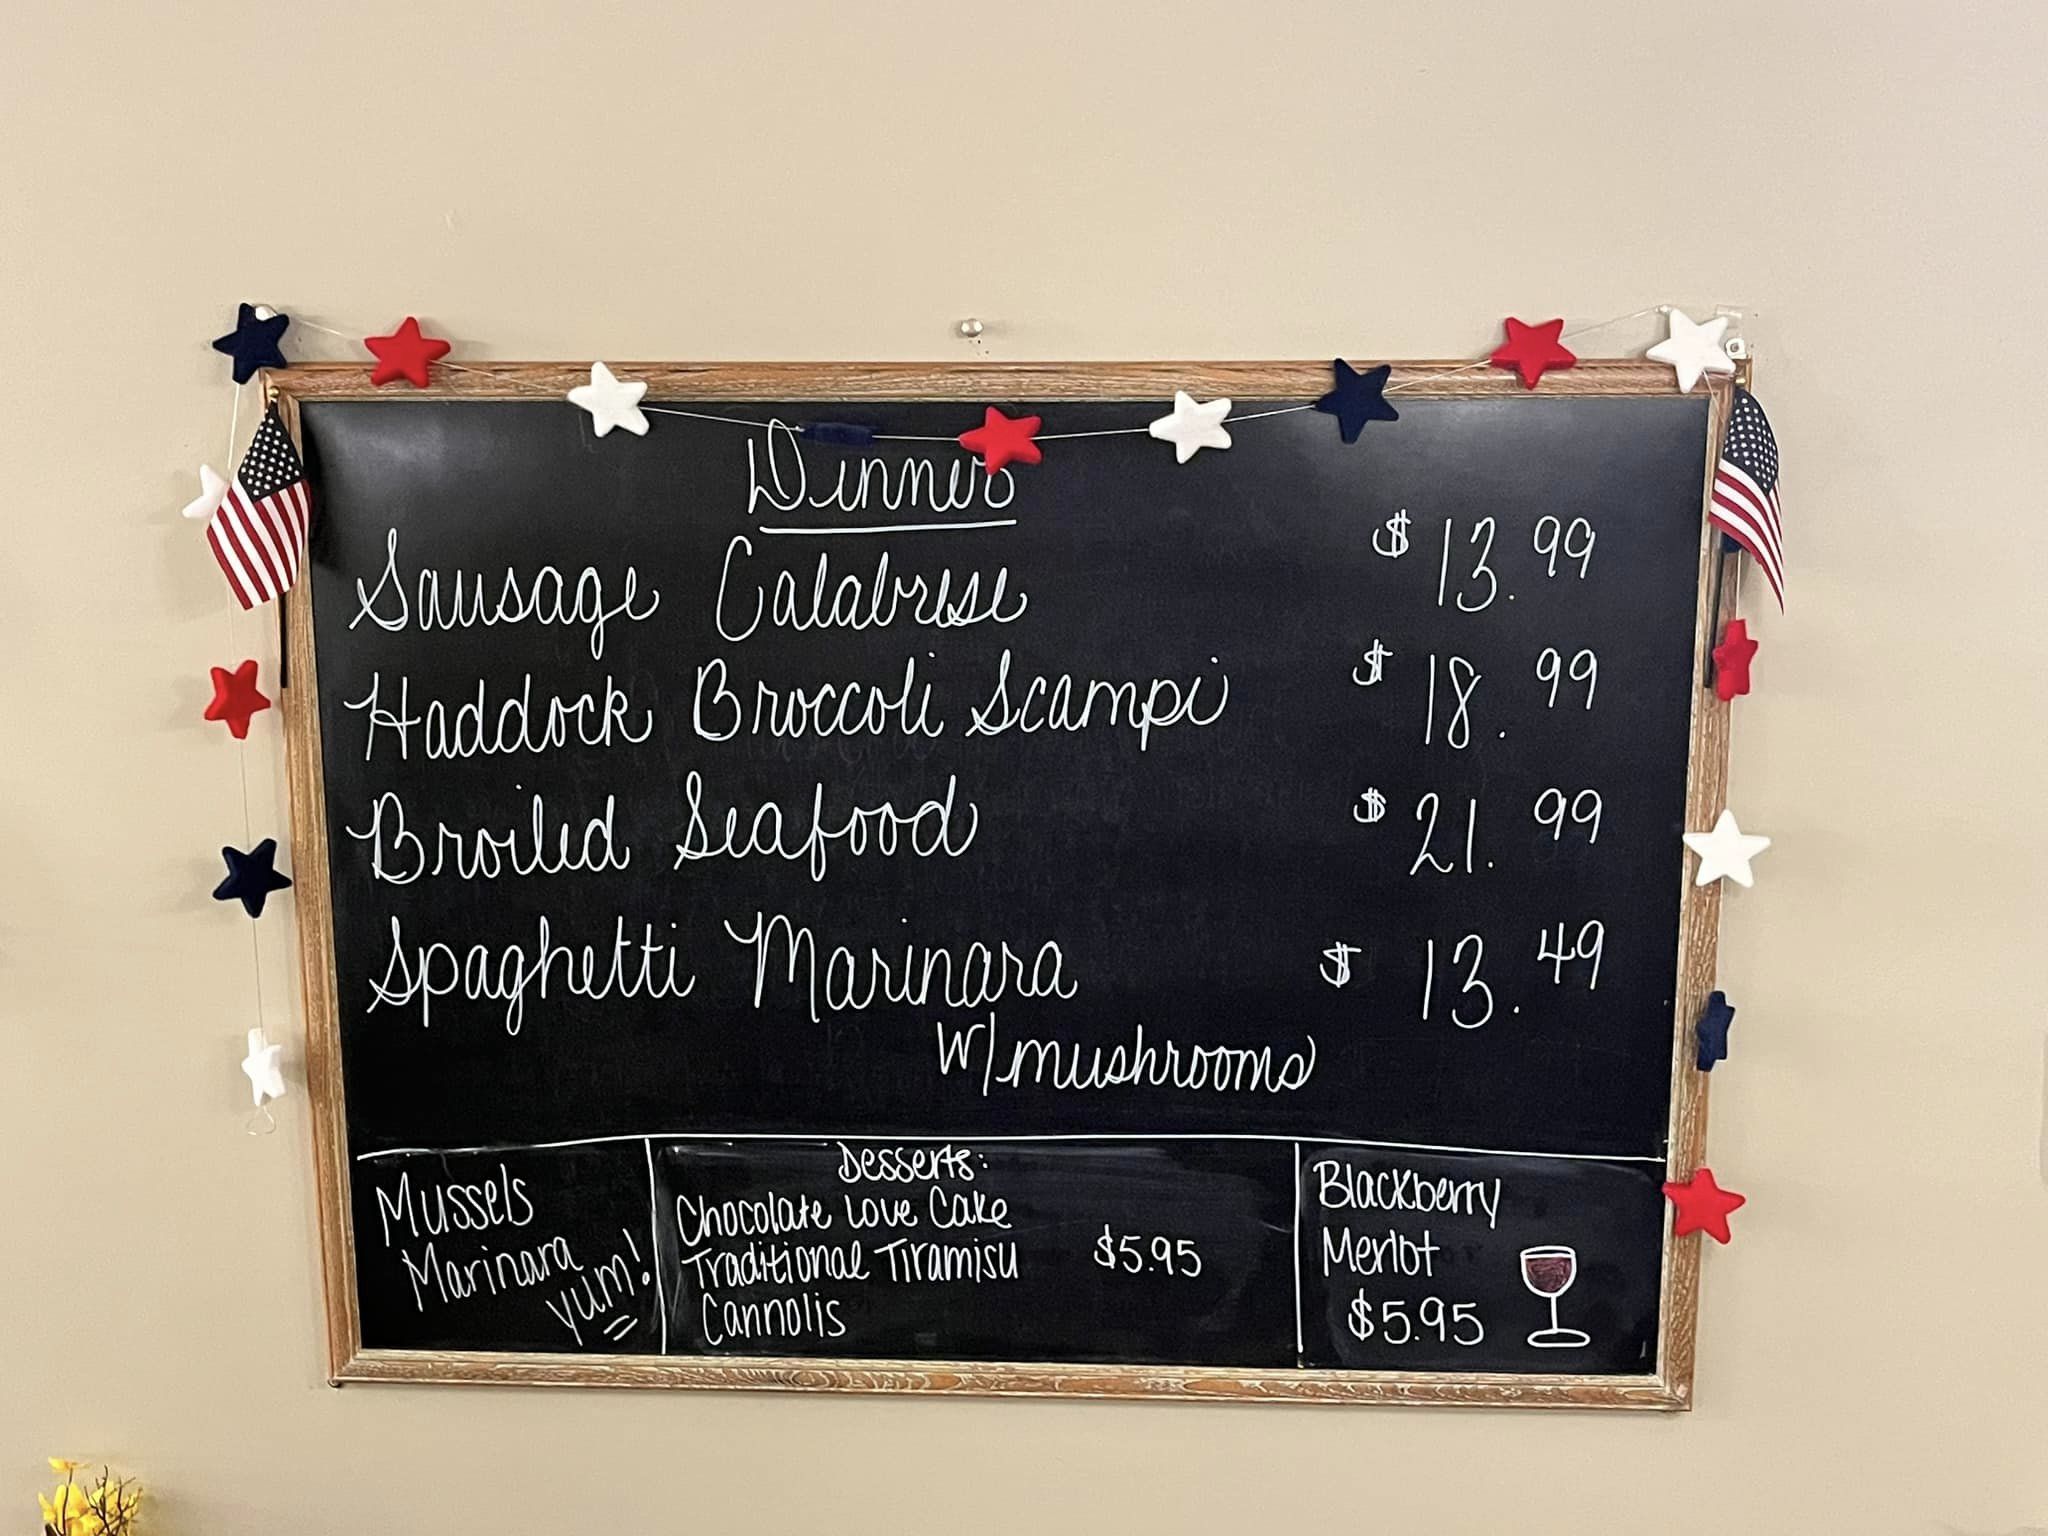 Dinner
Sausage Calabrese $13.99
Haddock Broccoli Scampi $18.99
Broiled Seafood $21.99
Spaghetti Marinara $13.49
W/mushrooms
Mussels
Marinara
yum!
Desserts:
Chocolate Love Cake
Traditional Tiramisu $5.95
Cannolis
Blackberry
Merlot
$5.95